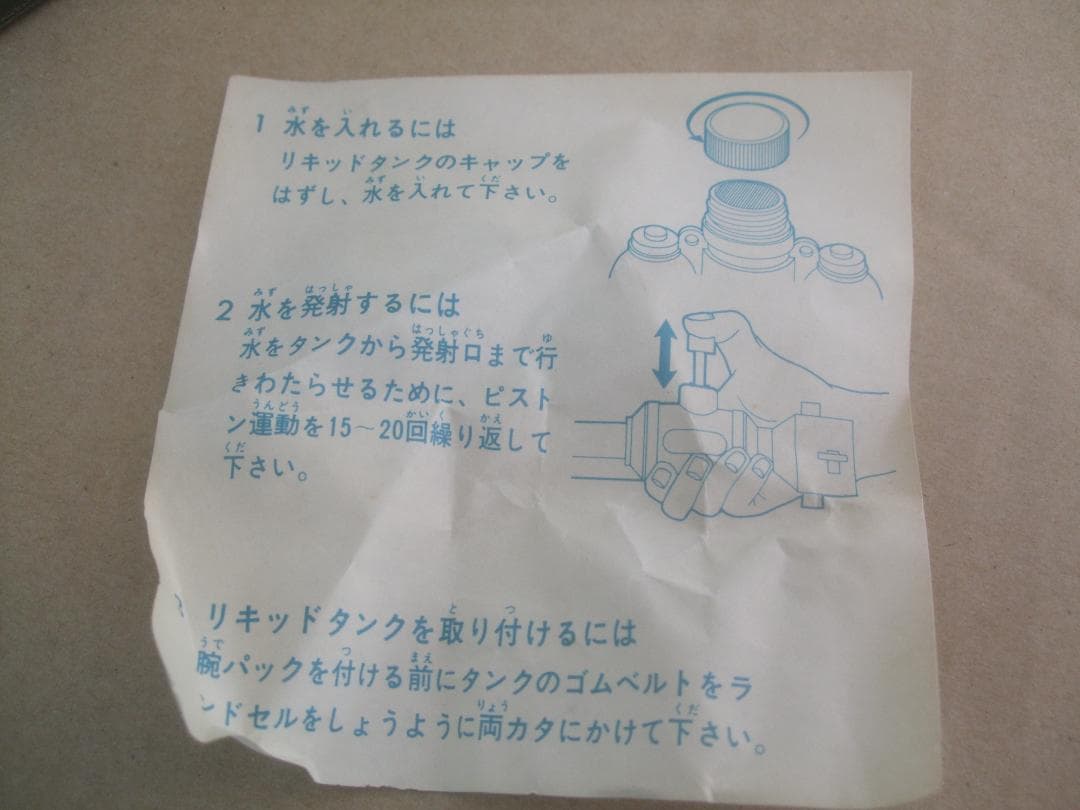 1 水を入れるには
リキッドタンクのキャップを
はずし、水を入れて下さい。
2 水を発射するには
水をタンクから発射口まで行
きわたらせるために、ピスト
ン運動を15〜20回繰り返して
下さい。
リキッドタンクを取り付けるには
腕パックを付ける前にタンクのゴムベルトをラ
ンドセルをしょうように両カタにかけて下さい。